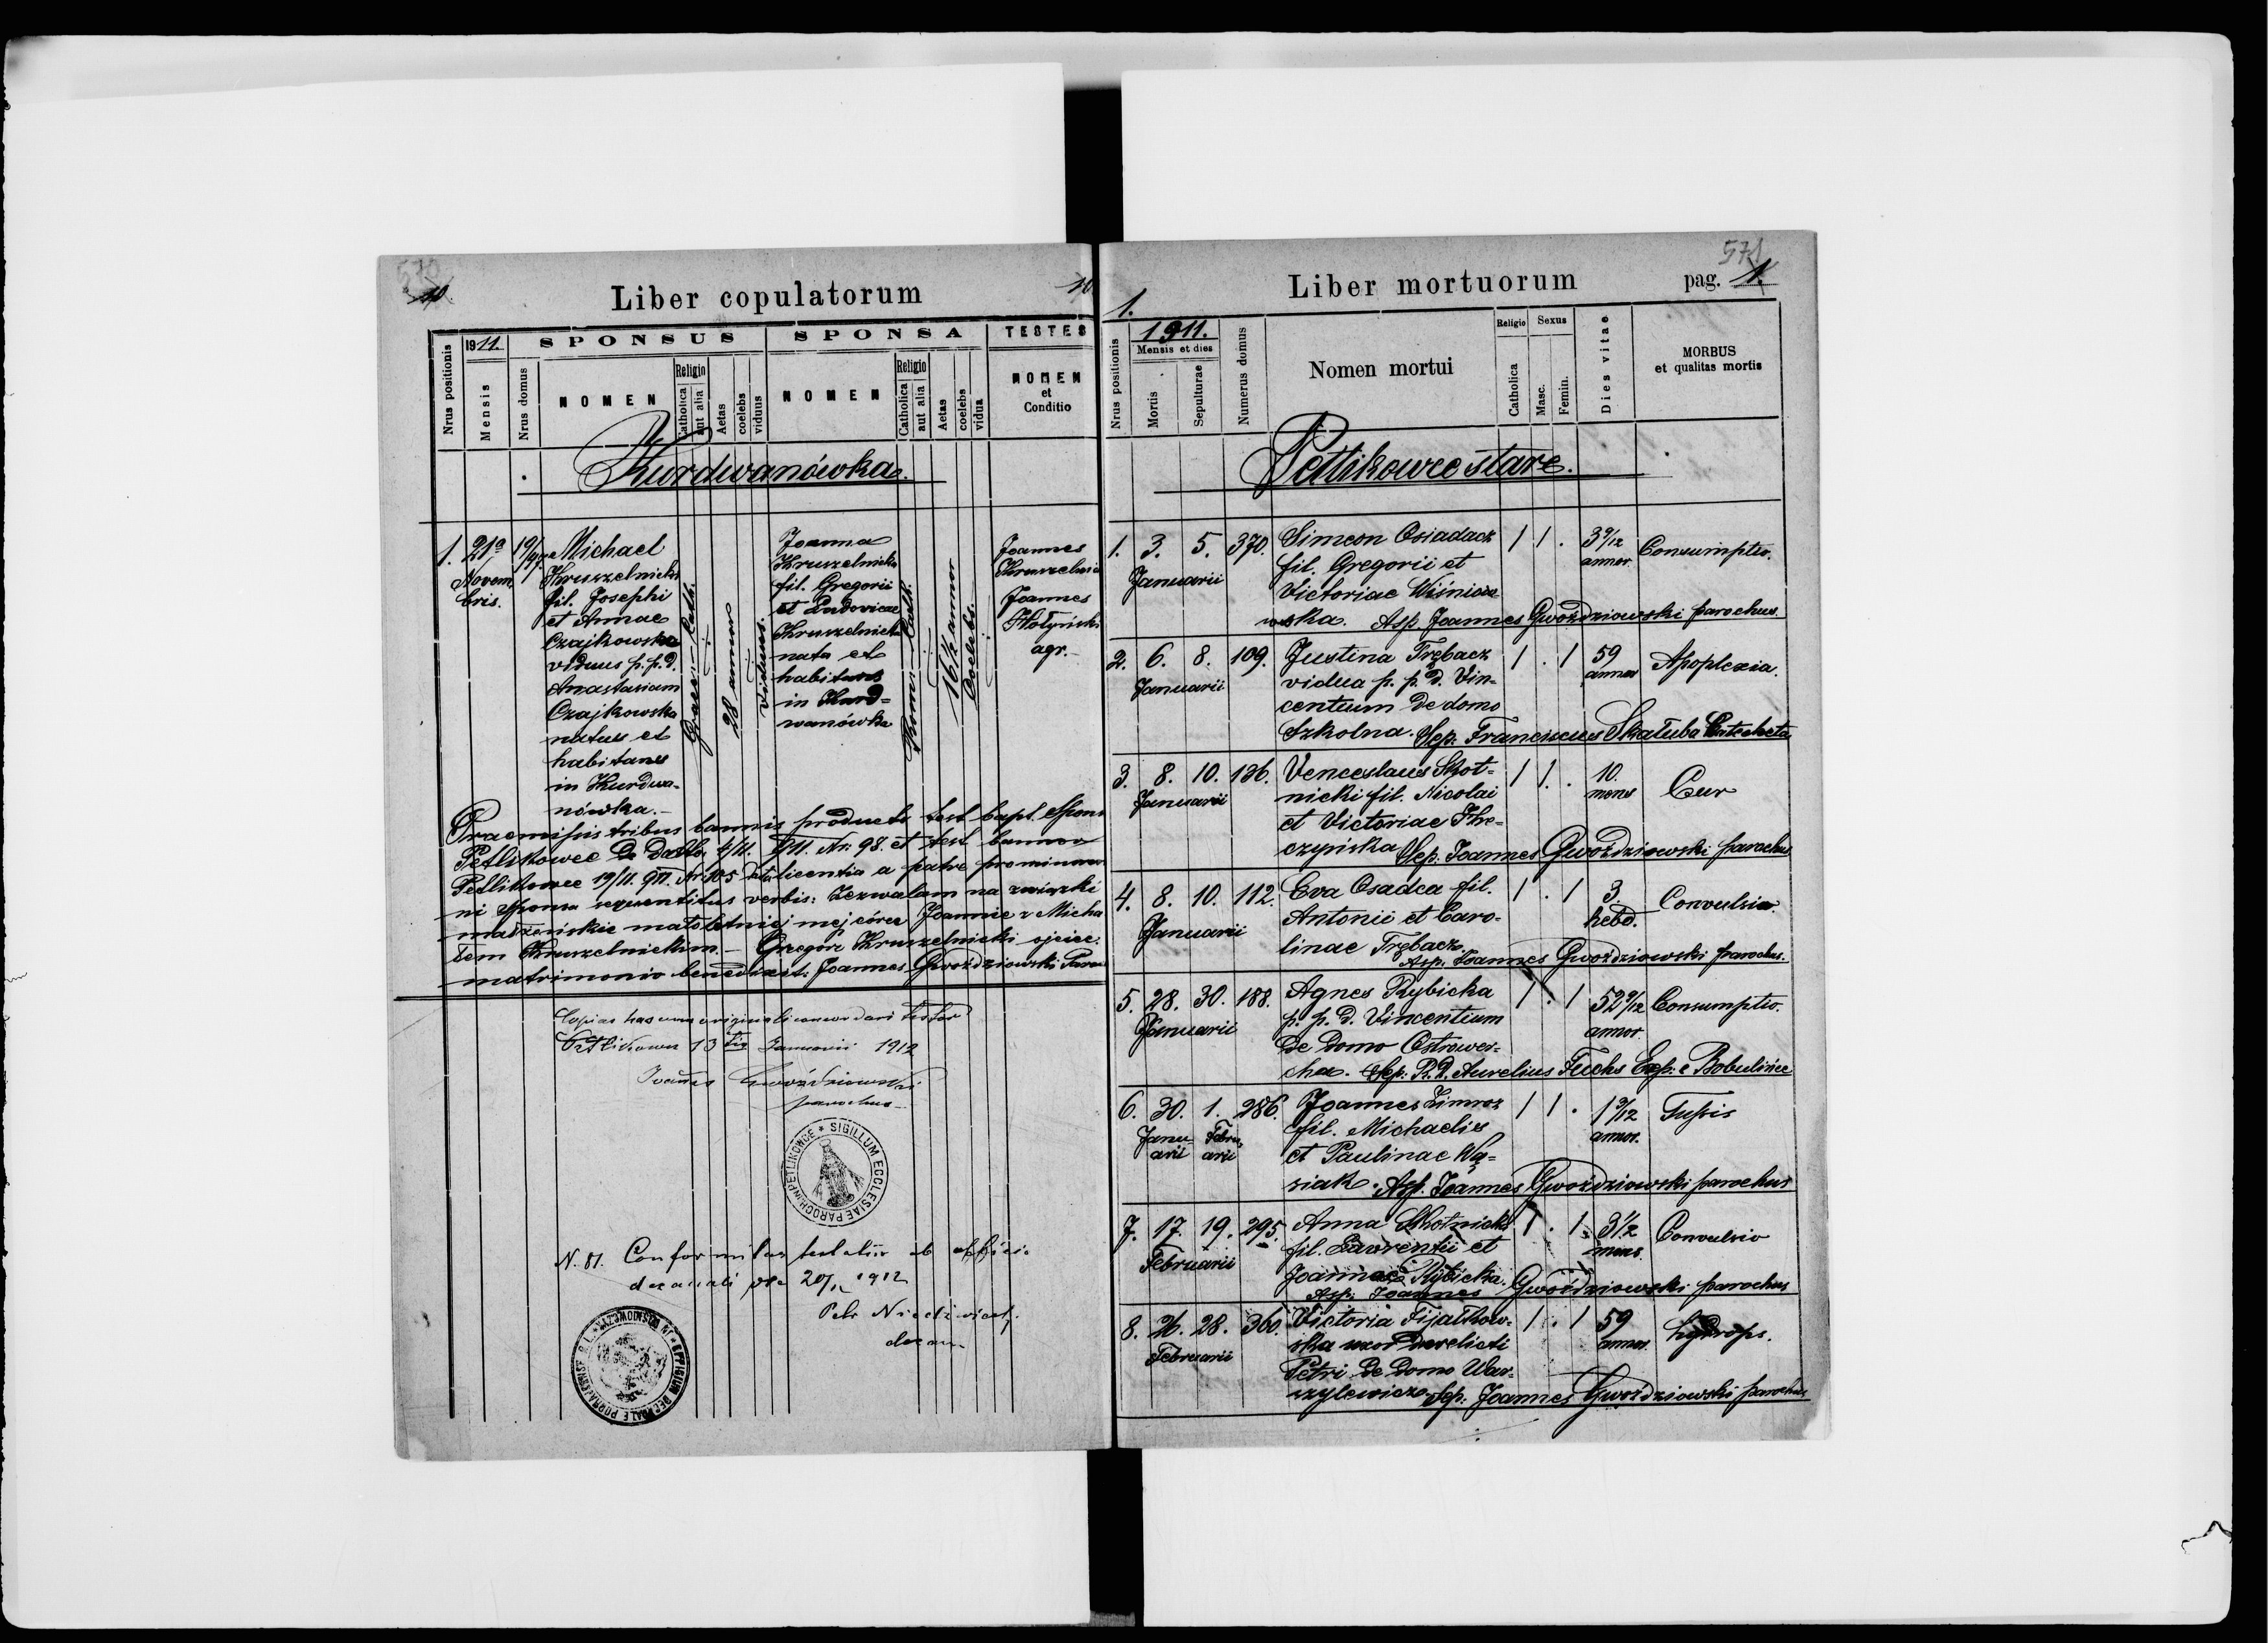 570
10.
Liber copulatorum
10
Nrus positionis
1911.
Mensis
SPONSUS
Nrus domus
NOMEN
Religio
Catholica
aut alia
Aetas
coelebs
viduus
SPONSA
NOMEN
Religio
Catholica
aut alia
Aetas
coelebs
vidua
TESTES
NOMEN
et
Conditio
Kurdwanówka.
1.
21a
Novem
bris.
Michael
Kruszelnicki
fil. Josephi
et Annae
Czajkowska
viduus p. p. d.
Anastasiam
Czajkowska
natus et
habitans
in Kurdwa-
nówka.-
Graeci Cath.
28 annor
Viduus.
Joanna
Kruszelnicka
fil. Gregorii
et Ludovicae
Kruszelnicka
nata et
habitans
in Kurd-
wanówka
Romi Cath.
16½ annor
Coelebs.
Joannes
Kruszelnicki
Joannes
Hołyński
agr.-
Praemissis tribus bannis producta test bapt. Spons
Petlikowce de datto 4/11. 911. Nr: 98. et test bannor
Petlikowce 19/11. 911. Nr 105 licentia a patre prominoren
ni sponsa sequentibus verbis: Zezwalam na związki
małżeńskie małoletniej mej córce Joannie z Micha
łem Kruszelnickim.- Gregorz Kruszelnicki ojciec.
matrimonio benedixit: Joannes Gwoździowski Paroc
Copias has cum originali concordari testor
Petlikowce 13 tia Januarii 1912
Joannes Gwoździowski
parochus
SIGILLUM ECCLESIAE PAROCH. IN PETLIKOWCE
N. 81. Conformitas testatur ab officio
decanali 20/ 1912
Petr
decan.
571
Liber mortuorum
pag. 1.
1.
Nrus positionis
1911.
Mensis et dies
Mortis
Sepulturae
Numerus domus
Nomen mortui
Religio
Catholica
Sexus
Masc.
Femin.
Dies vitae
MORBUS
et qualitas mortis
Petlikowce stare.
1. 3. 5. 370. Simeon Osiadacz 1 1 . 3 9/12 Consumptio.
Januarii fil. Gregorii et annor.
Victoriae Wiśniow
ska. Asp. Joannes Gwoździowski parochus
2. 6. 8. 109. Justina Trębacz 1 . 1 59 Apoplexia.
Januarii vidua p. p. d. Vin- annor
centium de domo
Szkolna. Sep. Franciscus Skałuba Catecheta
3. 8. 10. 136. Venceslaus Skot- 1 1 . 10. Cur
Januarii nicki fil. Nicolai mens
et Victoriae Kre-
czyńska Sep. Joannes Gwoździowski parochus
4. 8. 10. 112. Eva Osadca fil. 1 . 1 3. Convulsio.
Januarii Antonii et Caro- hebd.
linae Trębacz.
Asp. Joannes Gwoździowski parochus.
5. 28. 30. 188. Agnes Rybicka 1 . 1 52 9/12 Consumptio.
Januarii p. p. d. Vincentium annor.
de domo Ostrower-
cha. Sep: R. D. Aurelius Fuchs Exp. e Bobulińce
6. 30. 1. 286. Joannes Zimroz 1 1 . 1 9/12 Tussis
Janu- Febru- fil. Michaelis annor.
arii arii et Paulinae Wą-
siak. Asp. Joannes Gwoździowski parochus
7. 17. 19. 295. Anna Skotnicka 1 . 1 3½ Convulsio
Februarii fil. Lavrentii et mens.
Joannae Rybicka.
Asp: Joannes Gwoździowski parochus
8. 26. 28. 360. Victoria Fijałkow- 1 . 1 59 hydrops.
Februarii ska uxor derelicti annor.
Petri de domo War-
szylewicz Sep. Joannes Gwoździowski parochus